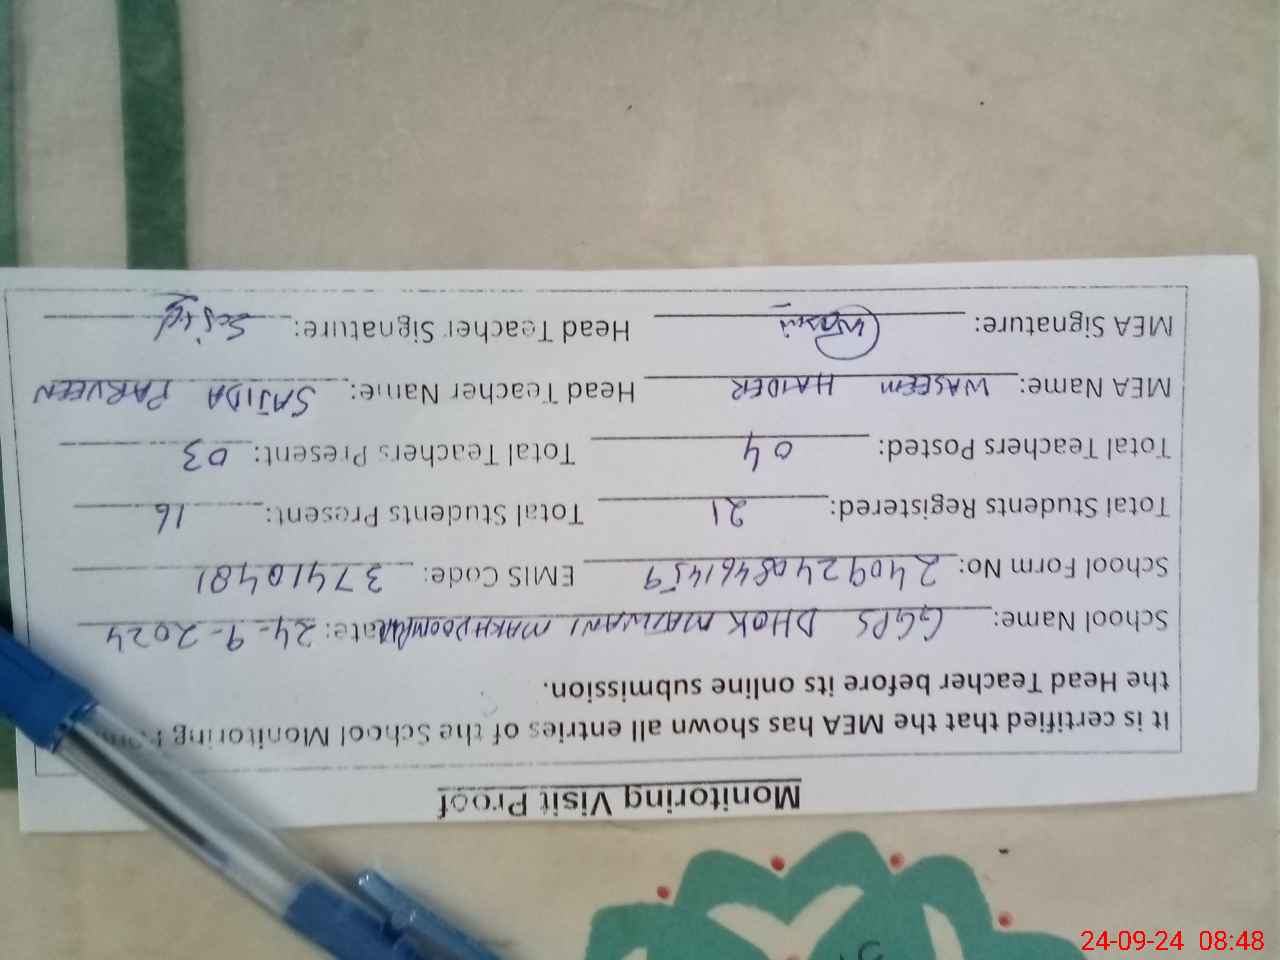 Monitoring Visit Proof
It is certified that the MEA has shown all entries of the School Monitoring Form
the Head Teacher before its online submission.
School Name: GGPS DHOK MALWANI MAKHDOOM Date: 24-9-2024
School Form No: 24092408461459 EMIS Code: 37410481
Total Students Registered: 21 Total Students Present: 16
Total Teachers Posted: 04 Total Teachers Present: 03
MEA Name: WASEEM HAIDER Head Teacher Name: SAJIDA PARVEEN
MEA Signature: Head Teacher Signature:
24-09-24 08:48